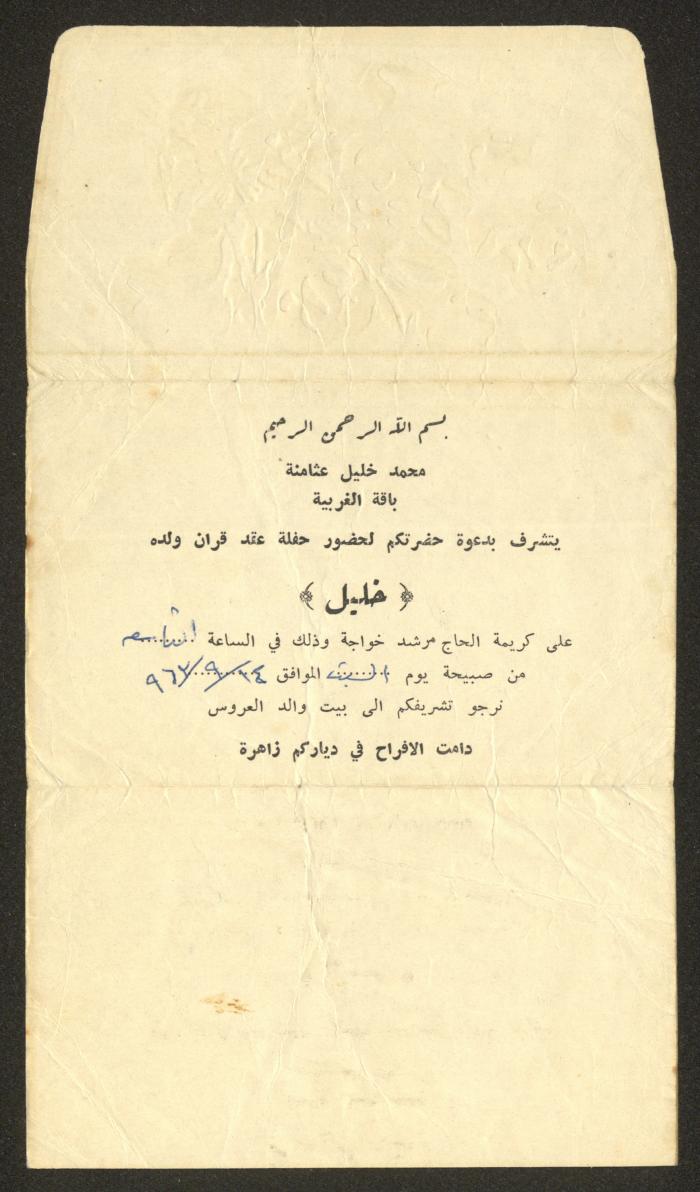 بسم الله الرحمن الرحيم
محمد خليل عثامنة
باقة الغربية
يتشرف بدعوة حضرتكم لحضور حفلة عقد قران ولده
﴿ خليل ﴾
على كريمة الحاج مرشد خواجة وذلك في الساعة التاسعة
من صبيحة يوم السبت الموافق ١٤/٩/٩٦٣
نرجو تشريفكم الى بيت والد العروس
دامت الافراح في دياركم زاهرة